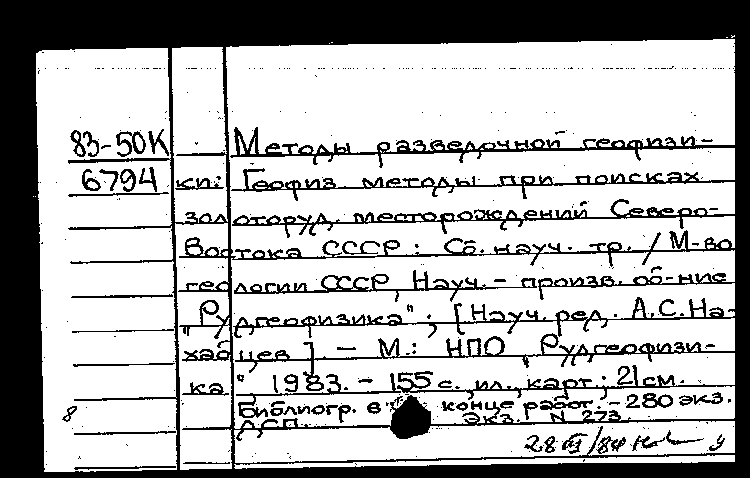 83-50К Методы разведочной геофизи-
6794 ки: Геофиз. методы при поисках
золоторуд. месторождений Северо-
Востока СССР: Сб. науч. тр. / М-во
геологии СССР, Науч.-произв. об-ние
"Рудгеофизика"; [Науч. ред. А.С. На-
хабцев]. - М.: НПО "Рудгеофизи-
ка", 1983. - 155 с., ил., карт; 21 см.
8 Библиогр. в конце работ. - 280 экз.
ДСП. Экз. N 273.
28